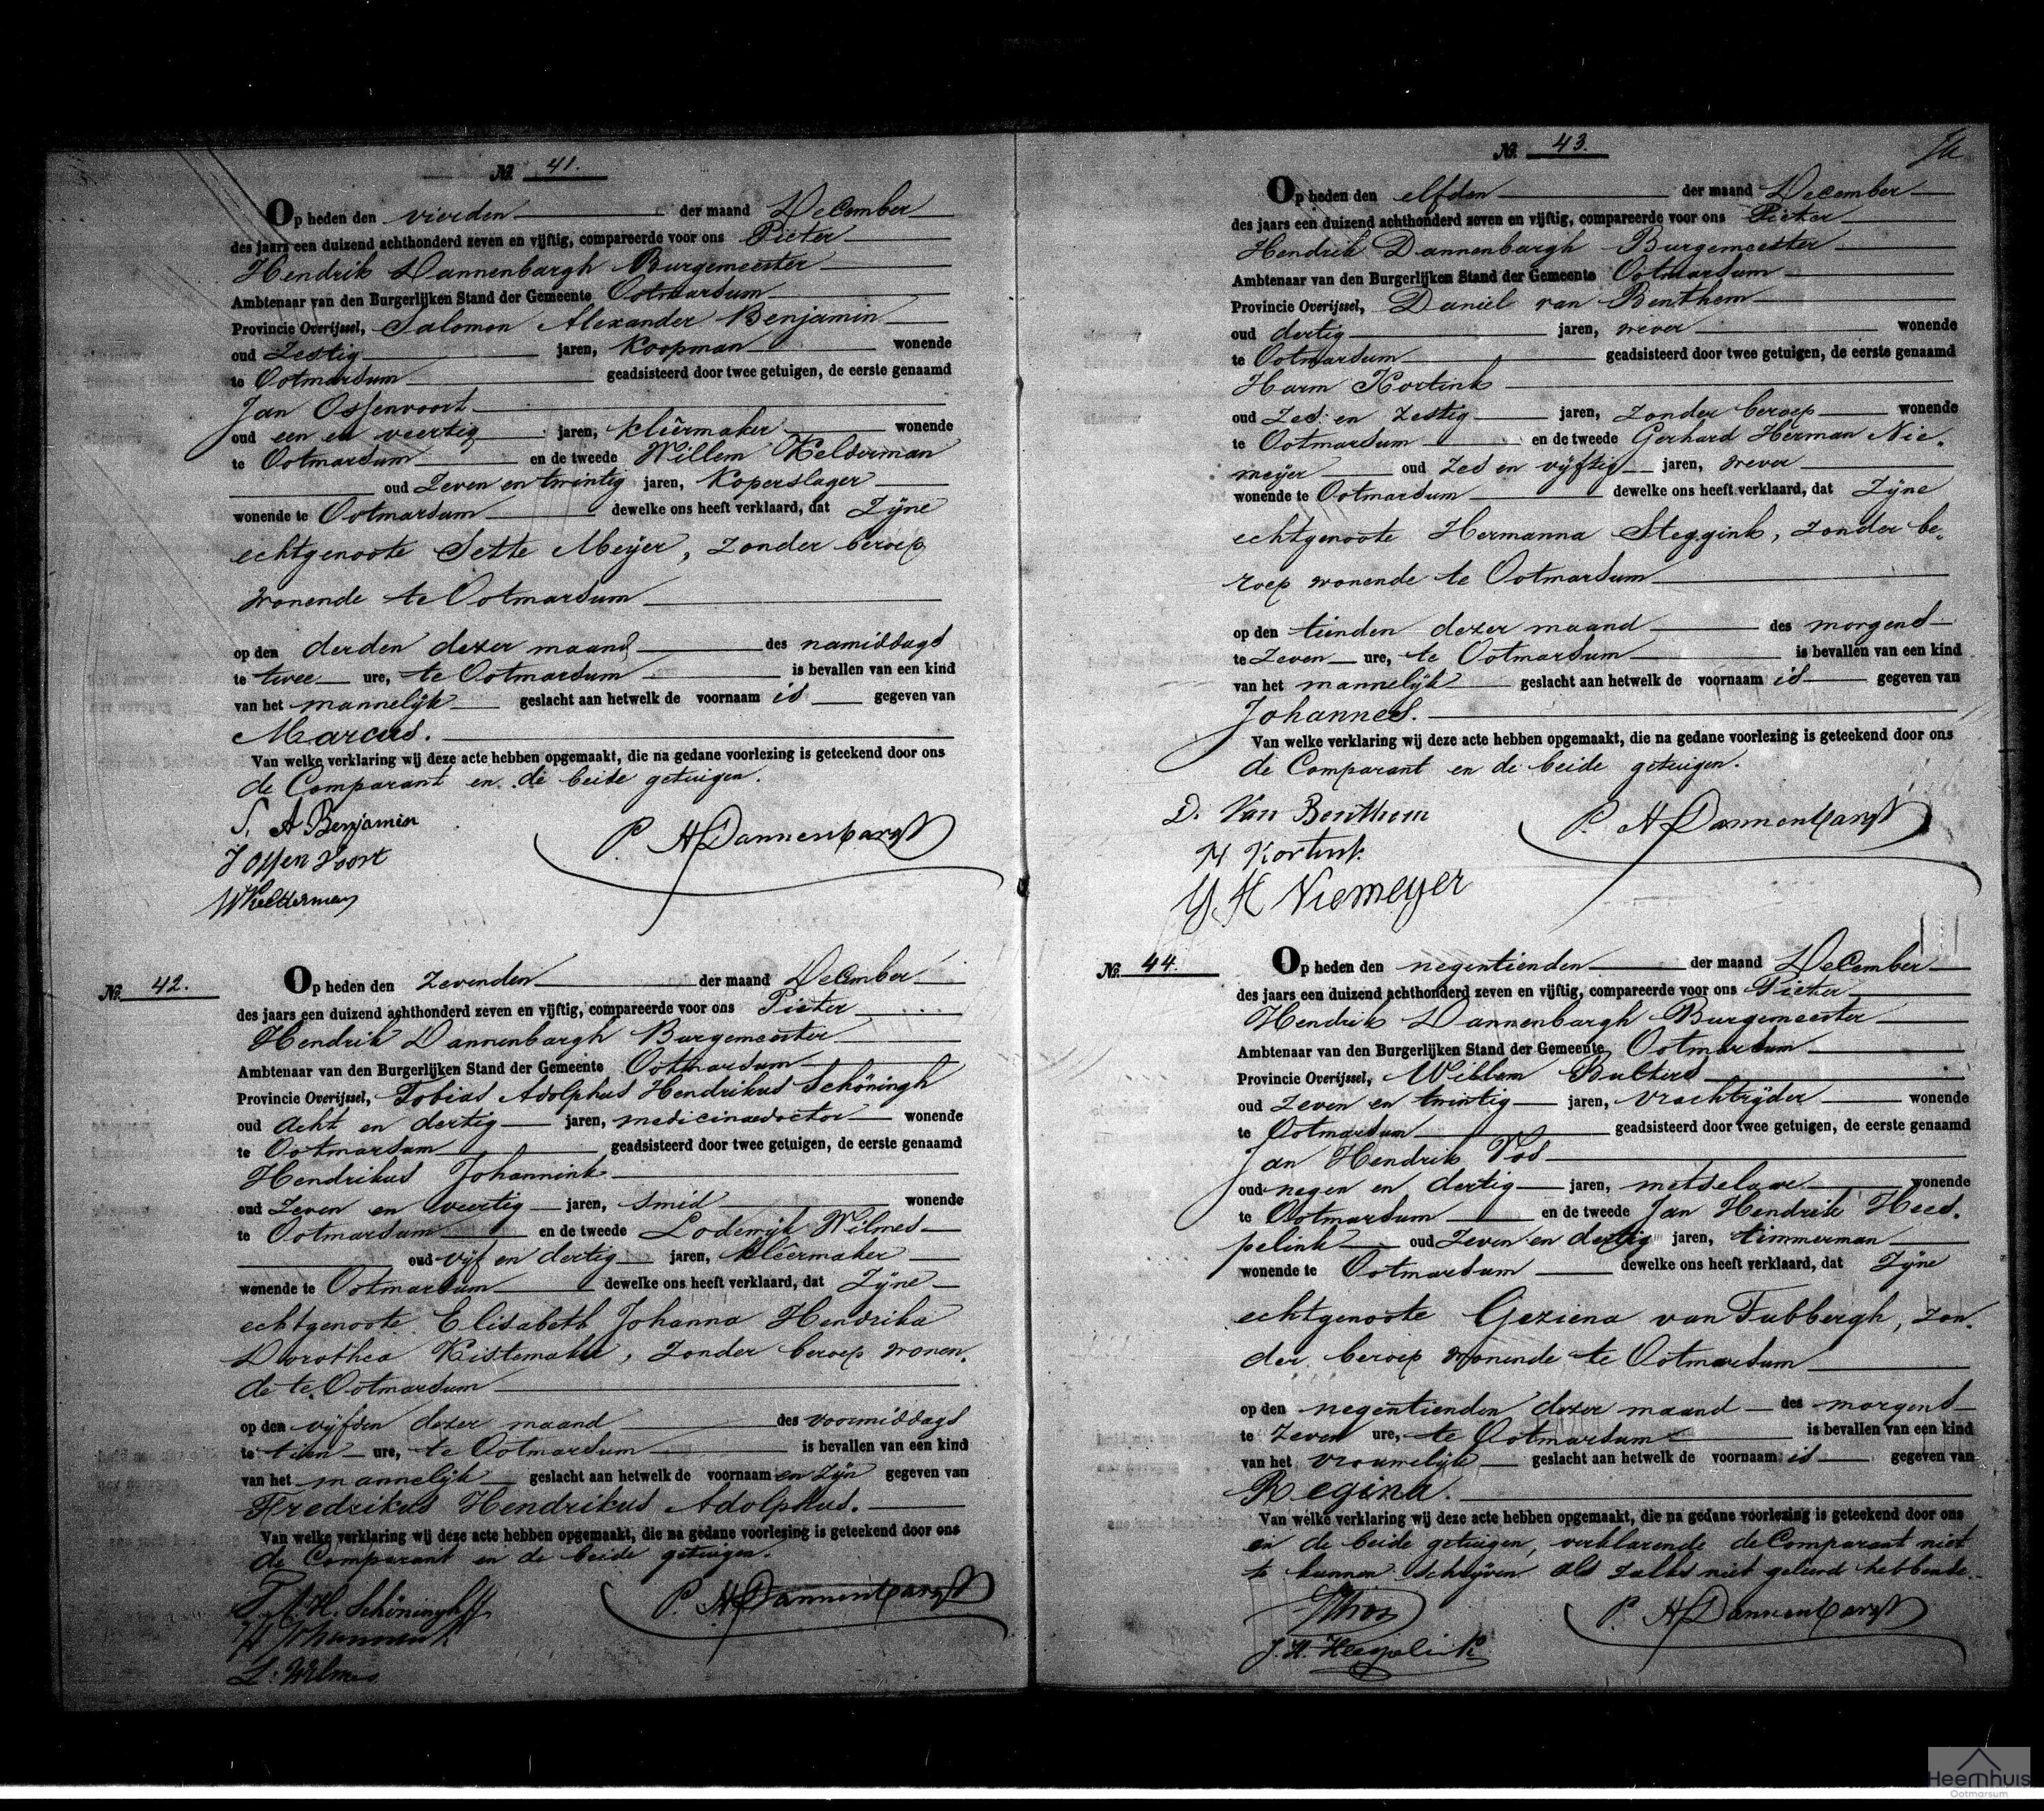 No. 41.
Op heden den vierden der maand December
des jaars een duizend achthonderd zeven en vijftig, compareerde voor ons Pieter
Hendrik Dannenbargh Burgemeester
Ambtenaar van den Burgerlijken Stand der Gemeente Ootmarsum
Provincie Overijssel, Salomon Alexander Benjamin
oud Zestig jaren, Koopman wonende
te Ootmarsum geadsisteerd door twee getuigen, de eerste genaamd
Jan Ossenvoort
oud een en veertig jaren, klêermaker wonende
te Ootmarsum en de tweede Willem Kelderman
oud Zeven en twintig jaren, Koperslager
wonende te Ootmarsum dewelke ons heeft verklaard, dat Zijne
echtgenoote Sette Meijer, zonder beroep
wonende te Ootmarsum
op den derden dezer maand des namiddags
te twee ure, te Ootmarsum is bevallen van een kind
van het mannelijk geslacht aan hetwelk de voornaam is gegeven van
Marcus.
Van welke verklaring wij deze acte hebben opgemaakt, die na gedane voorlezing is geteekend door ons
de Comparant en de beide getuigen.
S. A Benjamin
J ossen voort
P. H Dannenbargh
WKelderman
No. 42.
Op heden den Zevenden der maand December
des jaars een duizend achthonderd zeven en vijftig, compareerde voor ons Pieter
Hendrik Dannenbargh Burgemeester
Ambtenaar van den Burgerlijken Stand der Gemeente Ootmarsum
Provincie Overijssel, Tobias Adolphus Hendrikus Schöningh
oud Acht en dertig jaren, medicinaedoctor wonende
te Ootmarsum geadsisteerd door twee getuigen, de eerste genaamd
Hendrikus Johannink
oud Zeven en veertig jaren, smid wonende
te Ootmarsum en de tweede Lodewijk Wilmes
oud vijf en dertig jaren, klêermaker
wonende te Ootmarsum dewelke ons heeft verklaard, dat Zijne
echtgenoote Elisabeth Johanna Hendrika
Dorothea Kistemaker, Zonder beroep wonen,
de te Ootmarsum
op den vijfden dezer maand des voormiddags
te tien ure, te Ootmarsum is bevallen van een kind
van het mannelijk geslacht aan hetwelk de voornaam en zijn gegeven van
Fredrikus Hendrikus Adolphus.
Van welke verklaring wij deze acte hebben opgemaakt, die na gedane voorlezing is geteekend door ons
de Comparant en de beide getuigen.
T. A. H. Schöningh
P. H Dannenbargh
H Johannink
L. Wilmes
No. 43.
Op heden den elfden der maand December
des jaars een duizend achthonderd zeven en vijftig, compareerde voor ons Pieter
Hendrik Dannenbargh Burgemeester
Ambtenaar van den Burgerlijken Stand der Gemeente Ootmarsum
Provincie Overijssel, Daniel van Benthem
oud dertig jaren, wever wonende
te Ootmarsum geadsisteerd door twee getuigen, de eerste genaamd
Harm Kortink
oud Zes en Zestig jaren, Zonder beroep wonende
te Ootmarsum en de tweede Gerhard Herman Nie,
meijer oud Zes en vijftig jaren, wever
wonende te Ootmarsum dewelke ons heeft verklaard, dat Zijne
echtgenoote Hermanna Steggink, Zonder be,
roep wonende te Ootmarsum
op den tienden dezer maand des morgens
te Zeven ure, te Ootmarsum is bevallen van een kind
van het mannelijk geslacht aan hetwelk de voornaam is gegeven van
Johannes.
Van welke verklaring wij deze acte hebben opgemaakt, die na gedane voorlezing is geteekend door ons
de Comparant en de beide getuigen.
D. Van Benthem
P. H Dannenbargh
H Kortink
G H Niemeyer
No. 44.
Op heden den negentienden der maand December
des jaars een duizend achthonderd zeven en vijftig, compareerde voor ons Pieter
Hendrik Dannenbargh Burgemeester
Ambtenaar van den Burgerlijken Stand der Gemeente Ootmarsum
Provincie Overijssel, Willem Bulters
oud Zeven en twintig jaren, vrachtrijder wonende
te Ootmarsum geadsisteerd door twee getuigen, de eerste genaamd
Jan Hendrik Vos
oud negen en dertig jaren, metselaar wonende
te Ootmarsum en de tweede Jan Hendrik Hees,
pelink oud Zeven en dertig jaren, timmerman
wonende te Ootmarsum dewelke ons heeft verklaard, dat Zijne
echtgenoote Geziena van Tubbergh, Zon,
der beroep wonende te Ootmarsum
op den negentienden dezer maand des morgens
te Zeven ure, te Ootmarsum is bevallen van een kind
van het vrouwelijk geslacht aan hetwelk de voornaam is gegeven van
Regina.
Van welke verklaring wij deze acte hebben opgemaakt, die na gedane voorlezing is geteekend door ons
en de beide getuigen, verklarende de Comparant niet
te kunnen schrijven als zulks niet geleerd hebbende.
JHVos
P. H Dannenbargh
J. H. Heespelink
Heemhuis
Ootmarsum